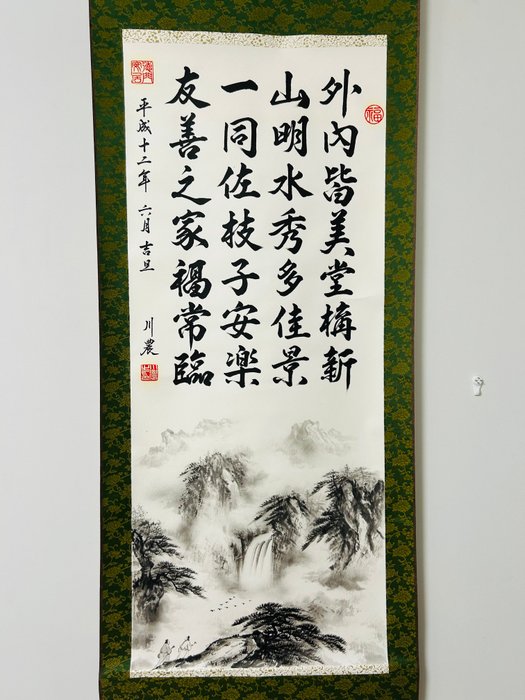 福
外内皆美堂構新
山明水秀多佳景
一同佐枝子安楽
友善之家福常臨
平成十二年 六月吉旦
川農